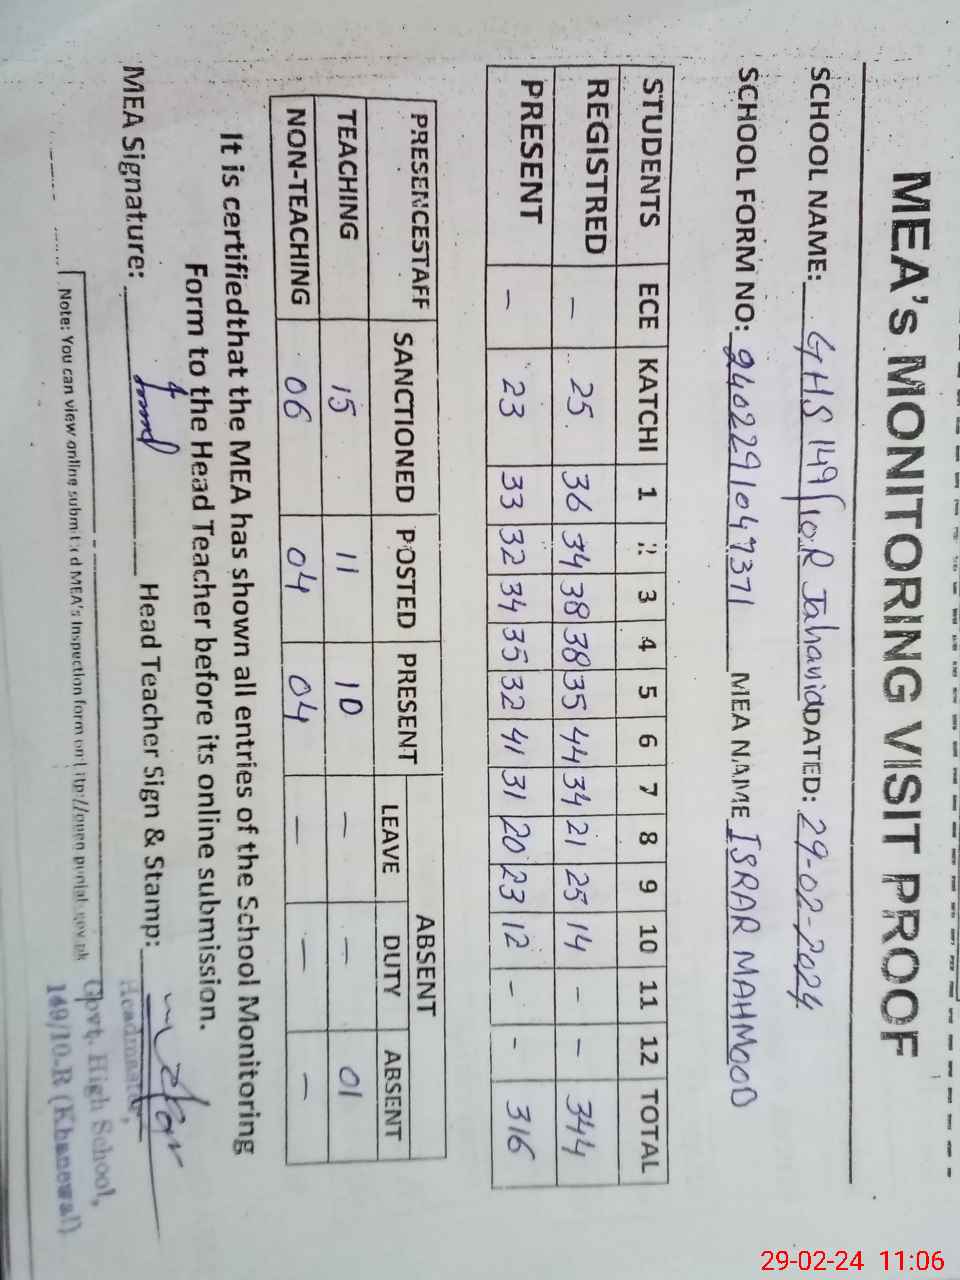 MEA's MONITORING VISIT PROOF
SCHOOL NAME: GHS 149/10.R Jahanid DATED: 29-02-2024
SCHOOL FORM NO: MEA NAME ISRAR MAHMOOD
STUDENTS ECE KATCHI 1 2 3 4 5 6 7 8 9 10 11 12 TOTAL
REGISTRED - 25 36 34 38 38 35 44 34 21 25 14 - - 344
PRESENT - 23 33 32 34 35 32 41 31 20 23 12 - - 316
PRESENCESTAFF SANCTIONED POSTED PRESENT ABSENT
LEAVE DUTY ABSENT
TEACHING 15 11 10 - - 01
NON-TEACHING 06 04 04 - - -
It is certifiedthat the MEA has shown all entries of the School Monitoring
Form to the Head Teacher before its online submission.
MEA Signature: Head Teacher Sign & Stamp:
Headmaster,
Govt. High School,
149/10-R (Khanewal)
Note: You can view online submitted MEA's Inspection form on
29-02-24 11:06